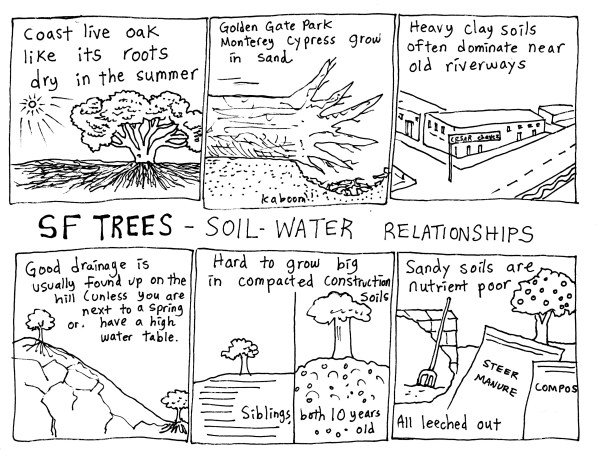 Coast live oak
like its roots
dry in the summer
Golden Gate Park
Monterey Cypress grow
in sand
kaboom!
Heavy clay soils
often dominate near
old riverways
CESAR chavez
SF TREES - SOIL-WATER RELATIONSHIPS
Good drainage is
usually found up on the
hill (unless you are
next to a spring
or. have a high
water table.
Hard to grow big
in compacted construction
soils
Siblings,
both 10 years
old
Sandy soils are
nutrient poor
STEER
MANURE
COMPOS
All leeched out